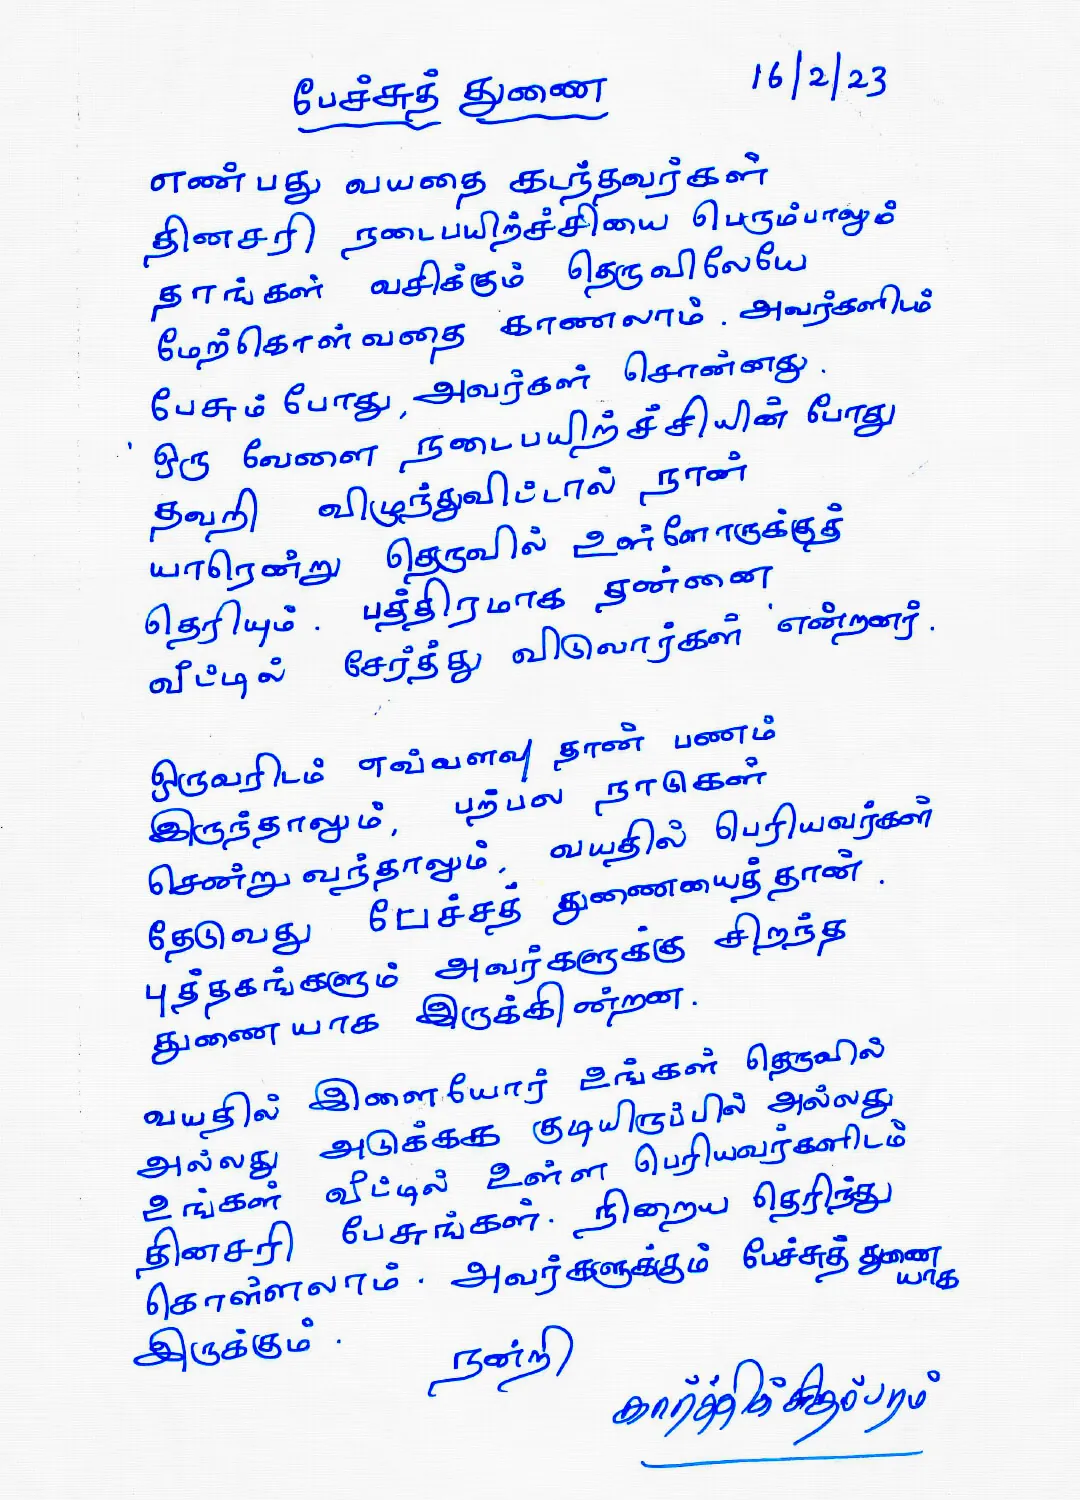 பேச்சுத் துணை 16/2/23
எண்பது வயதை கடந்தவர்கள்
தினசரி நடைபயிற்ச்சியை பெரும்பாலும்
தாங்கள் வசிக்கும் தெருவிலேயே
மேற்கொள்வதை காணலாம். அவர்களிடம்
பேசும் போது, அவர்கள் சொன்னது.
'ஒரு வேளை நடைபயிற்ச்சியின் போது
தவறி விழுந்துவிட்டால் நான்
யாரென்று தெருவில் உள்ளோருக்குத்
தெரியும். பத்திரமாக தண்னை
வீட்டில் சேர்த்து விடுவார்கள்' என்றனர்.
ஒருவரிடம் எவ்வளவு தான் பணம்
இருந்தாலும், பற்பல நாடுகள்
சென்று வந்தாலும், வயதில் பெரியவர்கள்
தேடுவது பேச்சத் துணையைத்தான்.
புத்தகங்களும் அவர்களுக்கு சிறந்த
துணையாக இருக்கின்றன.
வயதில் இளையோர் உங்கள் தெருவில்
அல்லது அடுக்கக குடியிருப்பில் அல்லது
உங்கள் வீட்டில் உள்ள பெரியவர்களிடம்
தினசரி பேசுங்கள். நிறைய தெரிந்து
கொள்ளலாம். அவர்களுக்கும் பேச்சுத் துணை
யாக
இருக்கும்.
நன்றி
கார்த்திக் சிதம்பரம்